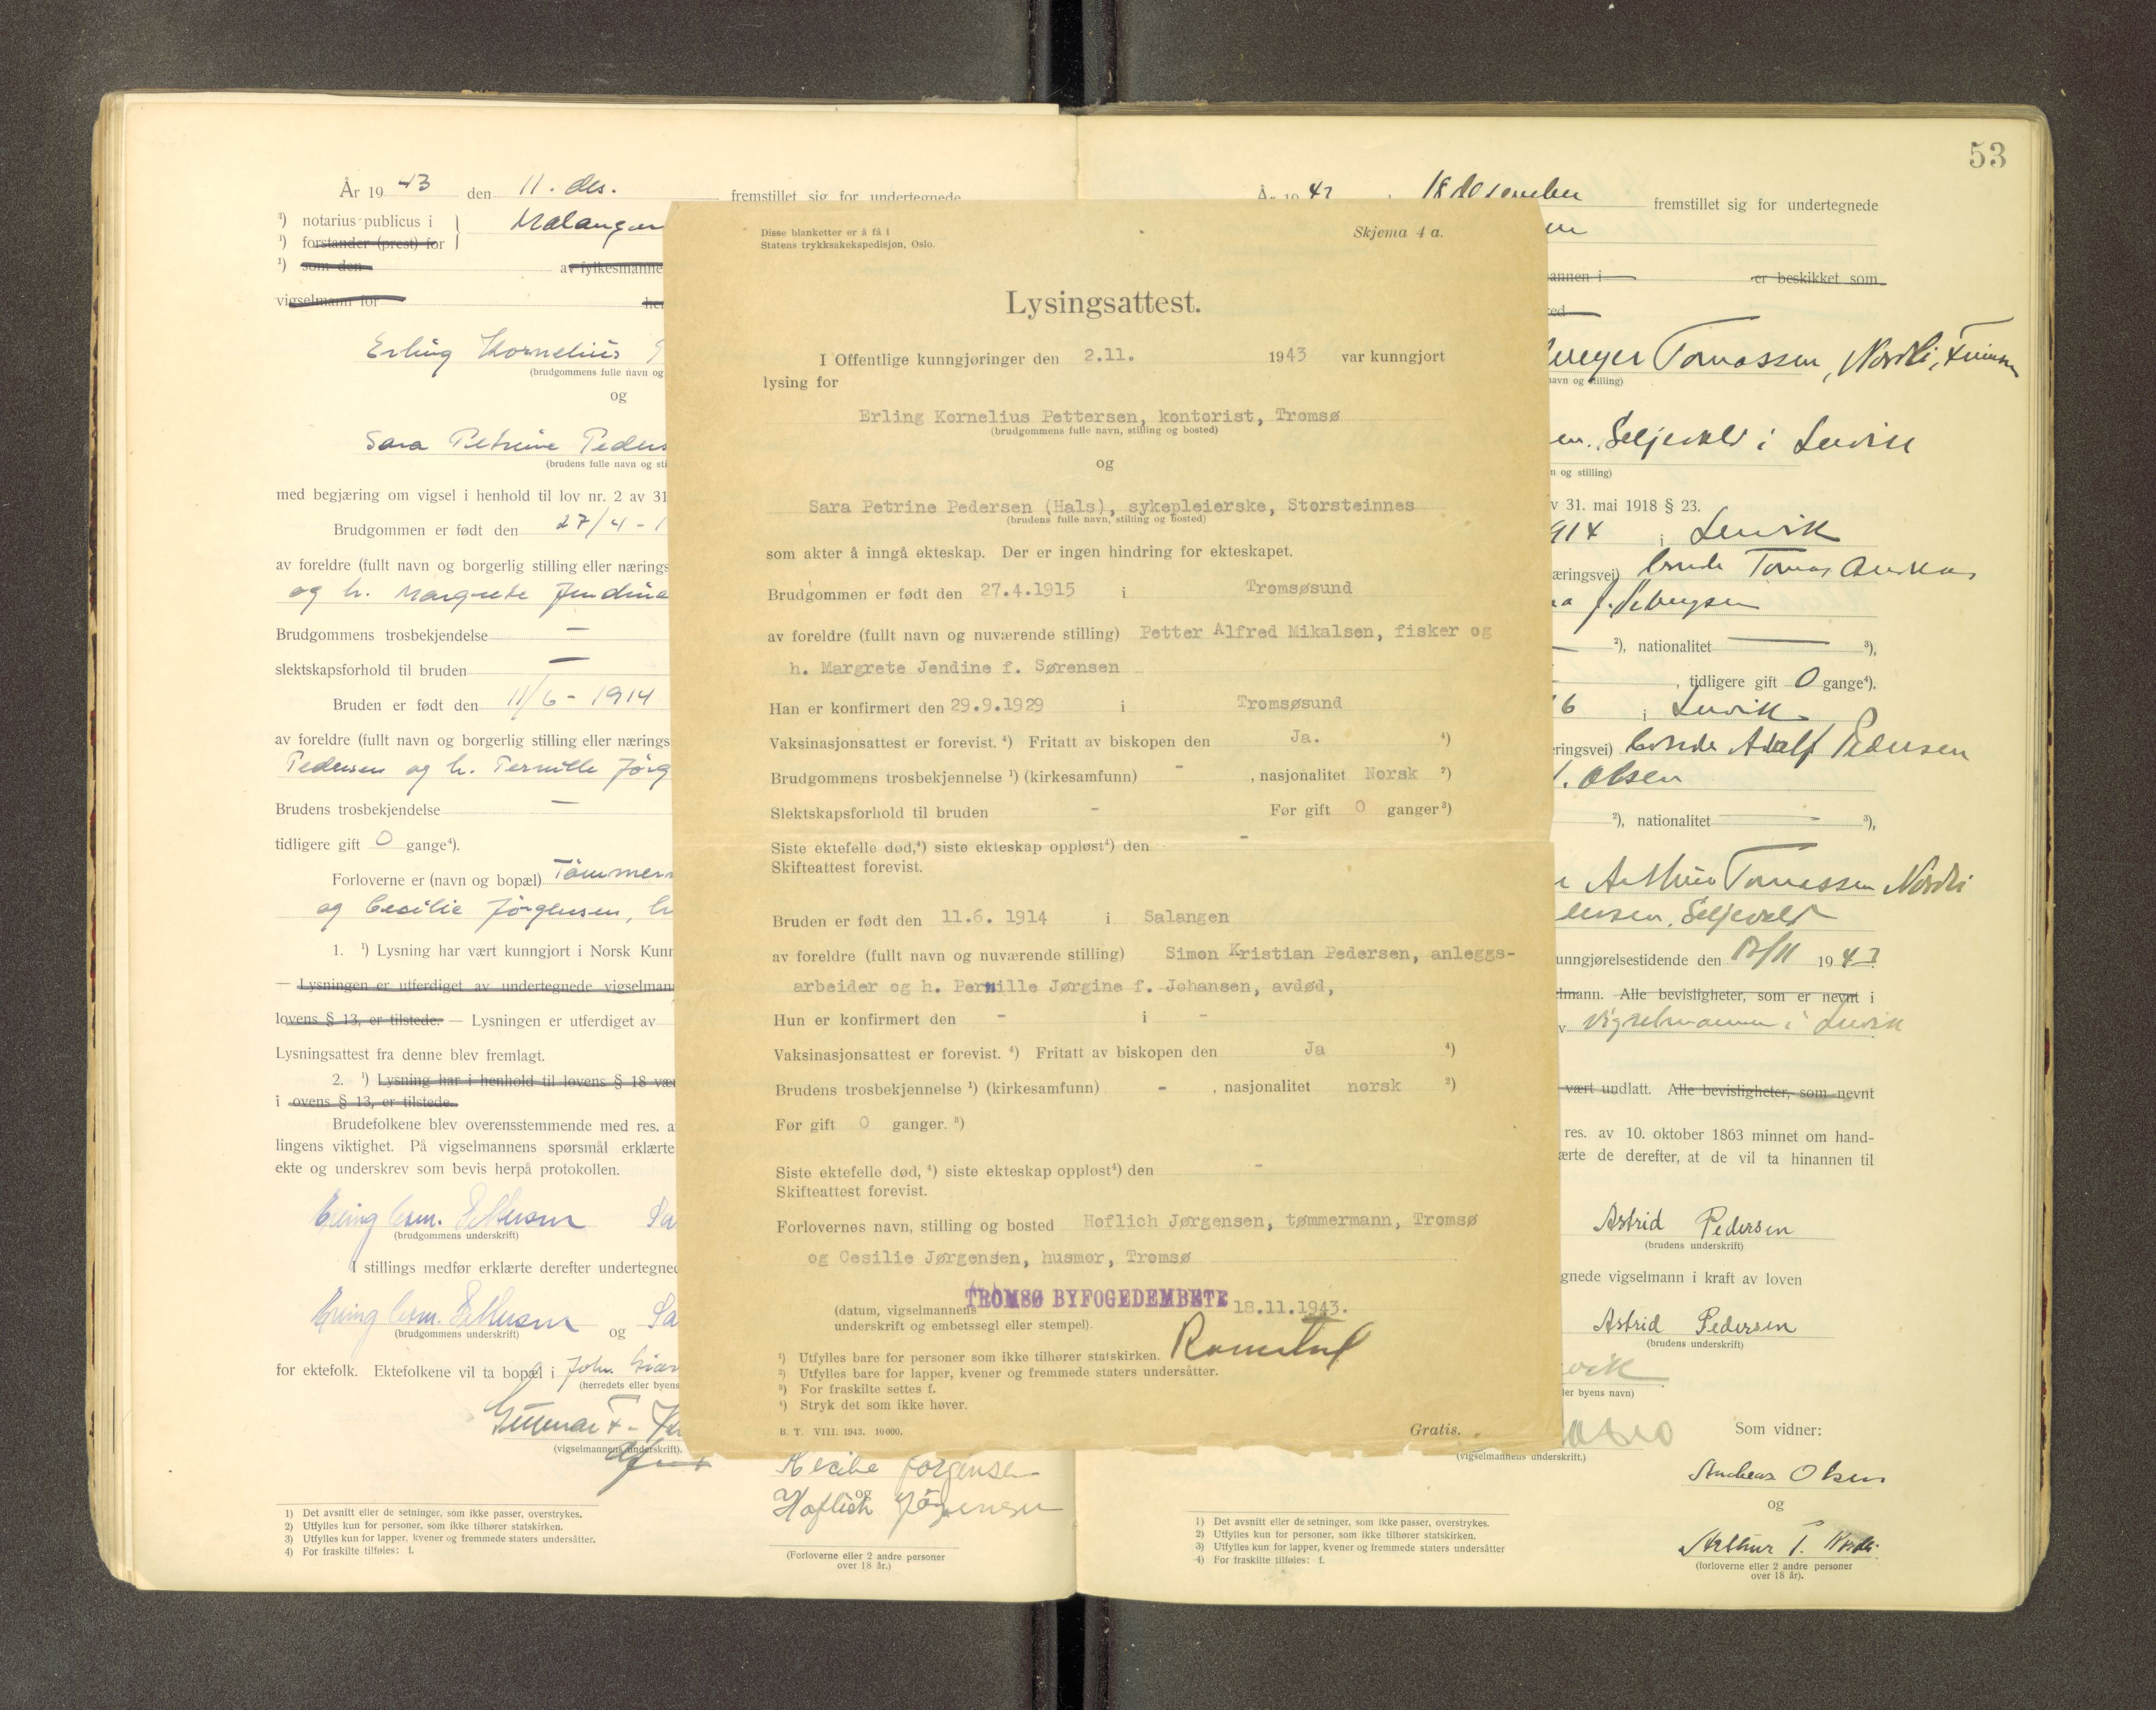 År 19 43 den 11. des. fremstillet sig for undertegnede
¹) notarius publicus i Malangen
¹) forstander (prest) for
¹) som den av fylkesmanne
vigselmann for her
Erling Kornelius
(brudgommens fulle navn og
og
Sara Petrine Peders
(brudens fulle navn og sti
med begjæring om vigsel i henhold til lov nr. 2 av 31
Brudgommen er født den 27/4 - 1
av foreldre (fullt navn og borgerlig stilling eller nærings
og h. Margrete Jendine
Brudgommens trosbekjendelse —
slektskapsforhold til bruden —
Bruden er født den 11/6 - 1914
av foreldre (fullt navn og borgerlig stilling eller nærings
Pedersen og h. Pernille Jørg
Brudens trosbekjendelse —
tidligere gift 0 gange⁴).
Forloverne er (navn og bopæl) Tömmerm
og Cecilie Jörgensen, h
1. ¹) Lysning har vært kunngjort i Norsk Kunn
— Lysningen er utferdiget av undertegnede vigselmann
lovens § 13, er tilstede. — Lysningen er utferdiget av
Lysningsattest fra denne blev fremlagt.
2. ¹) Lysning har i henhold til lovens § 18 vær
i ovens § 13, er tilstede.
Brudefolkene blev overensstemmende med res. a
lingens viktighet. På vigselmannens spørsmål erklærte
ekte og underskrev som bevis herpå protokollen.
Erling Corn. Pettersen Sa
(brudgommens underskrift)
I stillings medfør erklærte derefter undertegned
Erling Corn. Pettersen og Sa
(brudgommens underskrift)
for ektefolk. Ektefolkene vil ta bopæl i John
(herredets eller byens
Gunnar
(vigselmannens underskrift).
Kecilie Jørgensen
og
Hoflich Jörgensen
(Forloverne eller 2 andre personer
over 18 år.)
1) Det avsnitt eller de setninger, som ikke passer, overstrykes.
2) Utfylles kun for personer, som ikke tilhører statskirken.
3) Utfylles kun for lapper, kvener og fremmede staters undersåtter.
4) For fraskilte tilføies: f.
Disse blanketter er å få i
Statens trykksakekspedisjon, Oslo.
Skjema 4 a.
Lysingsattest.
I Offentlige kunngjøringer den 2.11. 1943 var kunngjort
lysing for
Erling Kornelius Pettersen, kontorist, Tromsø
(brudgommens fulle navn, stilling og bosted)
og
Sara Petrine Pedersen (Hals), sykepleierske, Storsteinnes
(brudens fulle navn, stilling og bosted)
som akter å inngå ekteskap. Der er ingen hindring for ekteskapet.
Brudgommen er født den 27.4.1915 i Tromsøsund
av foreldre (fullt navn og nuværende stilling) Petter Alfred Mikalsen, fisker og
h. Margrete Jendine f. Sørensen
Han er konfirmert den 29.9.1929 i Tromsøsund
Vaksinasjonsattest er forevist. ⁴) Fritatt av biskopen den Ja. ⁴)
Brudgommens trosbekjennelse ¹) (kirkesamfunn) - , nasjonalitet Norsk ²)
Slektskapsforhold til bruden - Før gift 0 ganger³)
Siste ektefelle død,⁴) siste ekteskap oppløst⁴) den -
Skifteattest forevist.
Bruden er født den 11.6. 1914 i Salangen
av foreldre (fullt navn og nuværende stilling) Simon Kristian Pedersen, anleggs-
arbeider og h. Pernille Jørgine f. Johansen, avdød,
Hun er konfirmert den - i -
Vaksinasjonsattest er forevist. ⁴) Fritatt av biskopen den Ja ⁴)
Brudens trosbekjennelse ¹) (kirkesamfunn) - , nasjonalitet norsk ²)
Før gift 0 ganger. ³)
Siste ektefelle død, ⁴) siste ekteskap oppløst⁴) den -
Skifteattest forevist.
Forlovernes navn, stilling og bosted Hoflich Jørgensen, tømmermann, Tromsø
og Cesilie Jørgensen, husmor, Tromsø
TROMSØ BYFOGEDEMBETE 18.11.1943.
(datum, vigselmannens
underskrift og embetssegl eller stempel).
¹) Utfylles bare for personer som ikke tilhører statskirken.
²) Utfylles bare for lapper, kvener og fremmede staters undersåtter.
³) For fraskilte settes f.
⁴) Stryk det som ikke høver.
B. T. VIII. 1943. 10 000.
Gratis.
53
År 19 43 18 desember fremstillet sig for undertegnede
annen i er beskikket som
Tomassen, Nordli,
navn og stilling)
Seljevold i Lenvik
n og stilling)
v 31. mai 1918 § 23.
914 i Lenvik
æringsvei) bonde Tomas Andreas
— ²), nationalitet — ³),
, tidligere gift 0 gange⁴).
6 i Lenvik
eringsvei) bonde Adolf Pedersen
. Olsen
²), nationalitet — ³),
Arthur Tomassen Nordli
dersen, Seljevold
unngjørelsestidende den /11 19 43
lmann. Alle bevisligheter, som er nevnt i
v vigselmannen i Lenvik
vært undlatt. Alle bevisligheter, som nevnt
res. av 10. oktober 1863 minnet om hand-
ærte de derefter, at de vil ta hinannen til
Astrid Pedersen
(brudens underskrift)
gnede vigselmann i kraft av loven
Astrid Pedersen
(brudens underskrift)
vik
ler byens navn)
Som vidner:
(vigselmannens underskrift.)
Andreas Olsen
og
Arthur T. Nordli
(forloverne eller 2 andre personer
over 18 år).
1) Det avsnitt eller de setninger, som ikke passer, overstrykes.
2) Utfylles kun for personer, som ikke tilhører statskirken.
3) Utfylles kun for lapper, kvener og fremmede staters undersåtter
4) For fraskilte tilføies: f.